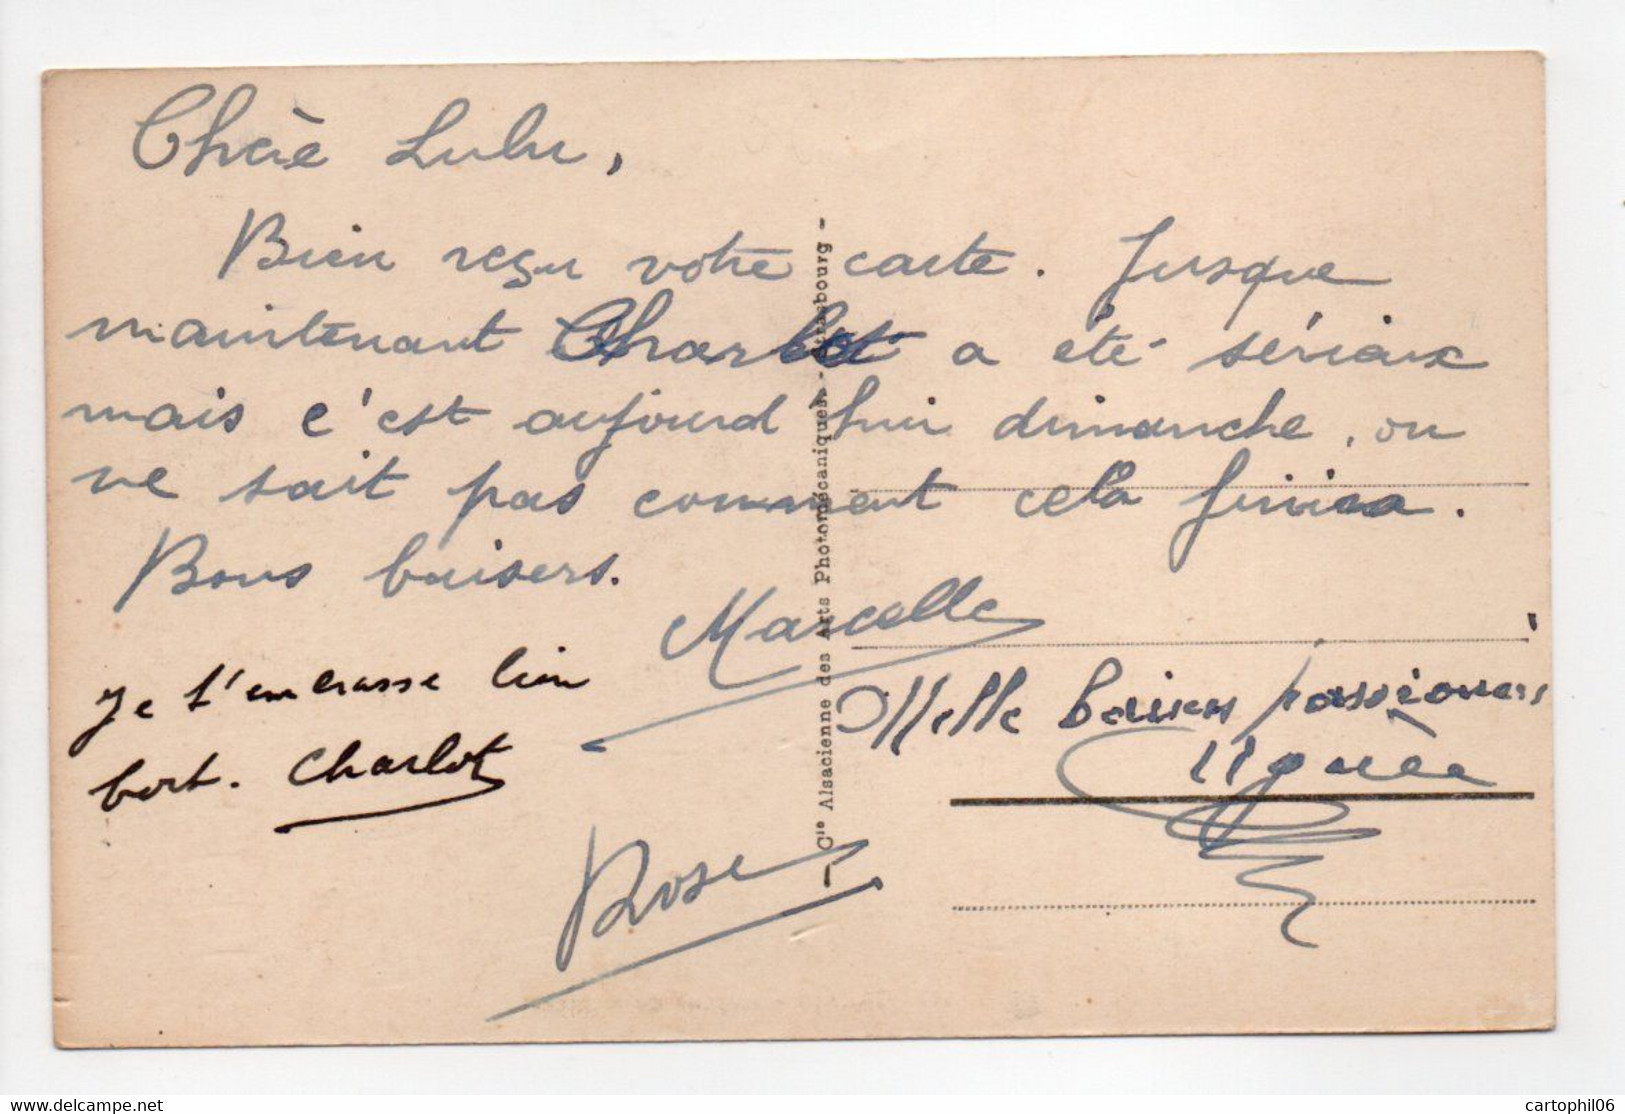 Chère Lulu,
Bien reçu votre carte. Jusque
maintenant Charlot a été sériaux
mais c'est aujourd'hui dimanche, on
ne sait pas comment cela finira.
Bons baisers.
Marcelle
Je t'embrasse bien
fort. Charlot
Mille baisers passionnés
Rose
— Cie Alsacienne des Arts Photomécaniques. - Strasbourg —
delcampe.net
cartophil06